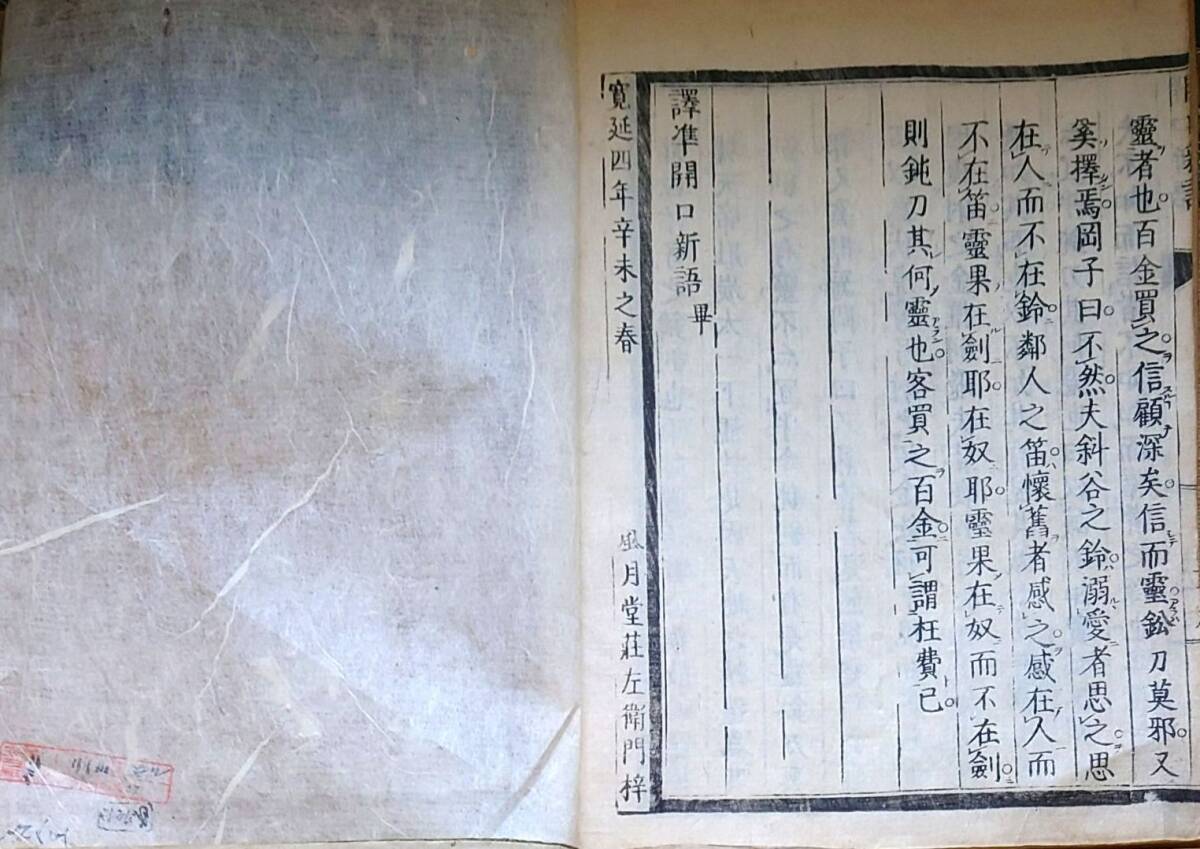 靈者也百金買之信顧深矣信而靈鈆刀莫邪又
奚擇焉岡子曰不然夫斜谷之鈴溺愛者思之思
在人而不在鈴鄰人之笛懷舊者感之感在人而
不在笛靈果在劍耶在奴耶靈果在奴而不在劍
則鈍刀其何靈也客買之百金可謂枉費已
譯準開口新語畢
寬延四年辛未之春
風月堂莊左衛門梓